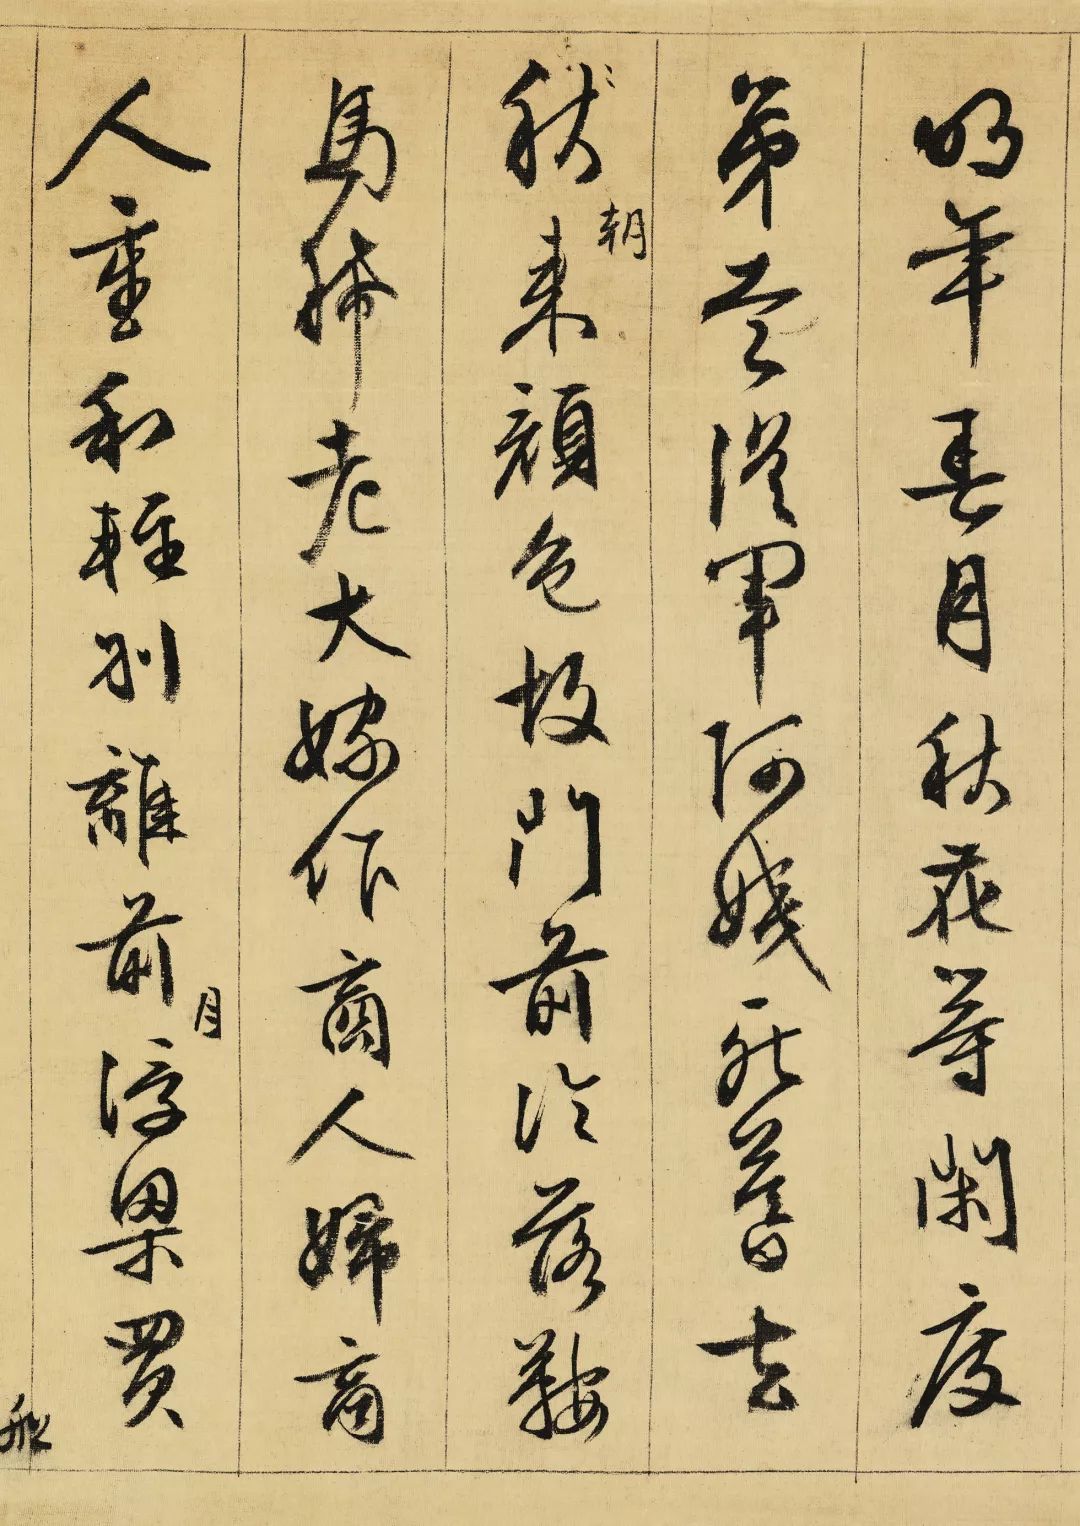 明年春月秋花等閑度
弟走從軍阿姨死暮去
秋朝来顔色故門前冷落鞍
馬稀老大嫁作商人婦商
人重利輕别離前月浮梁買